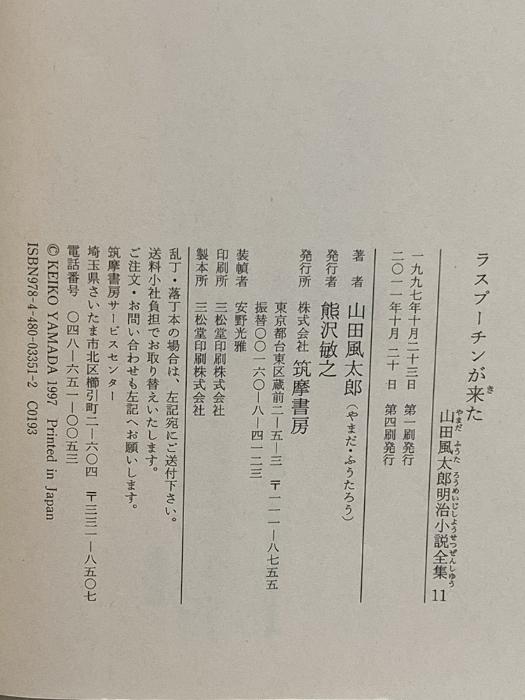 ラスプーチンが来た
き
山田風太郎明治小説全集 11
やまだ ふうた ろうめいじしようせつぜんしゆう
一九九七年十月二十三日 第一刷発行
二〇一一年十月二十日 第四刷発行
著者 山田風太郎（やまだ・ふうたろう）
発行者 熊沢敏之
発行所 株式会社 筑摩書房
東京都台東区蔵前二—五—三 〒一一一—八七五五
振替〇〇一六〇—八—四一二三
装幀者 安野光雅
印刷所 三松堂印刷株式会社
製本所 三松堂印刷株式会社
乱丁・落丁本の場合は、左記宛にご送付下さい。
送料小社負担でお取り替えいたします。
ご注文・お問い合わせも左記へお願いします。
筑摩書房サービスセンター
埼玉県さいたま市北区櫛引町二—六〇四 〒三三一—八五〇七
電話番号 〇四八—六五一—〇〇五三
© KEIKO YAMADA 1997 Printed in Japan
ISBN978-4-480-03351-2 C0193